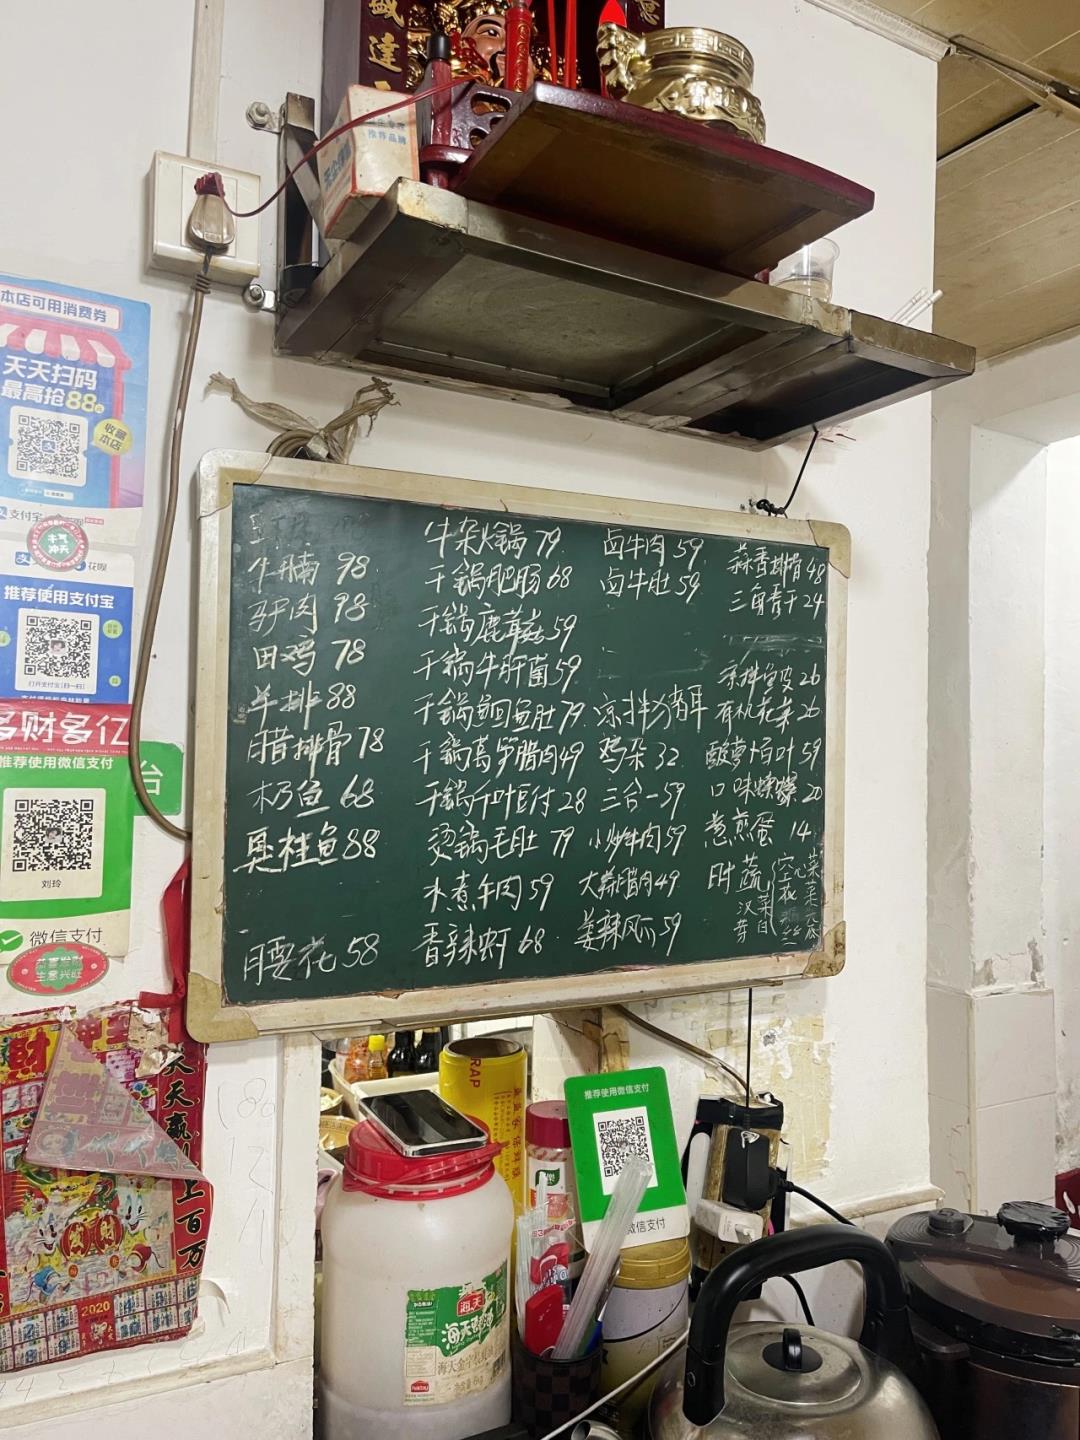 達
推荐品牌
本店可用消费券
天天扫码
最高抢88元
收藏
本店
支付宝
牛气
冲天
花呗
推荐使用支付宝
打开支付宝[扫一扫]
多财多亿
推荐使用微信支付
台
刘玲
微信支付
恭喜发财
生意兴旺
牛腩 98
78
田鸡 78
羊排 88
腊排骨 78
68
臭桂鱼 88
腰花 58
牛杂火锅 79
干锅肥肠 68
干锅鹿茸菇 59
干锅牛肝菌 59
干锅鮰鱼肚 79
干锅莴笋腊肉 49
干锅千叶豆付 28
烫锅毛肚 79
水煮牛肉 59
香辣虾 68
卤牛肉 59
卤牛肚 59
凉拌猪耳
鸡杂 32
三合一 59
小炒牛肉 59
大蒜腊肉 49
姜辣凤爪 59
蒜香排骨 48
三角青干 24
凉拌鱼皮 26
有机花菜 26
酸萝卜百叶 59
口味螺蛳 20
煮煎蛋 14
时蔬
天天赢
上百万
财
2020
WRAP
推荐使用微信支付
微信支付
海天
海天
海天金字